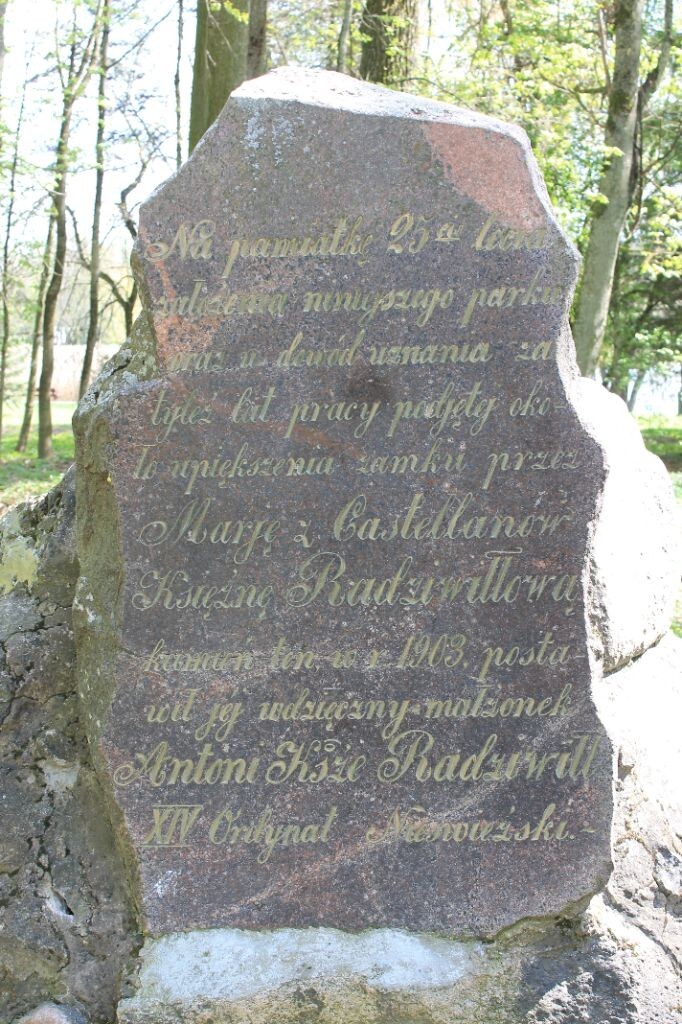 Na pamiątkę 25ej lecia
założenia niniejszego parku
oraz w dowód uznania za
tyleż lat pracy podjętej oko-
ło upiększenia zamku przez
Marję z Castellanów
Księżnę Radziwiłłową
kamień ten w r. 1903. posta
wił jej wdzięczny małżonek
Antoni Ksże Radziwiłł
XIV Ordynat Nieświeżski.